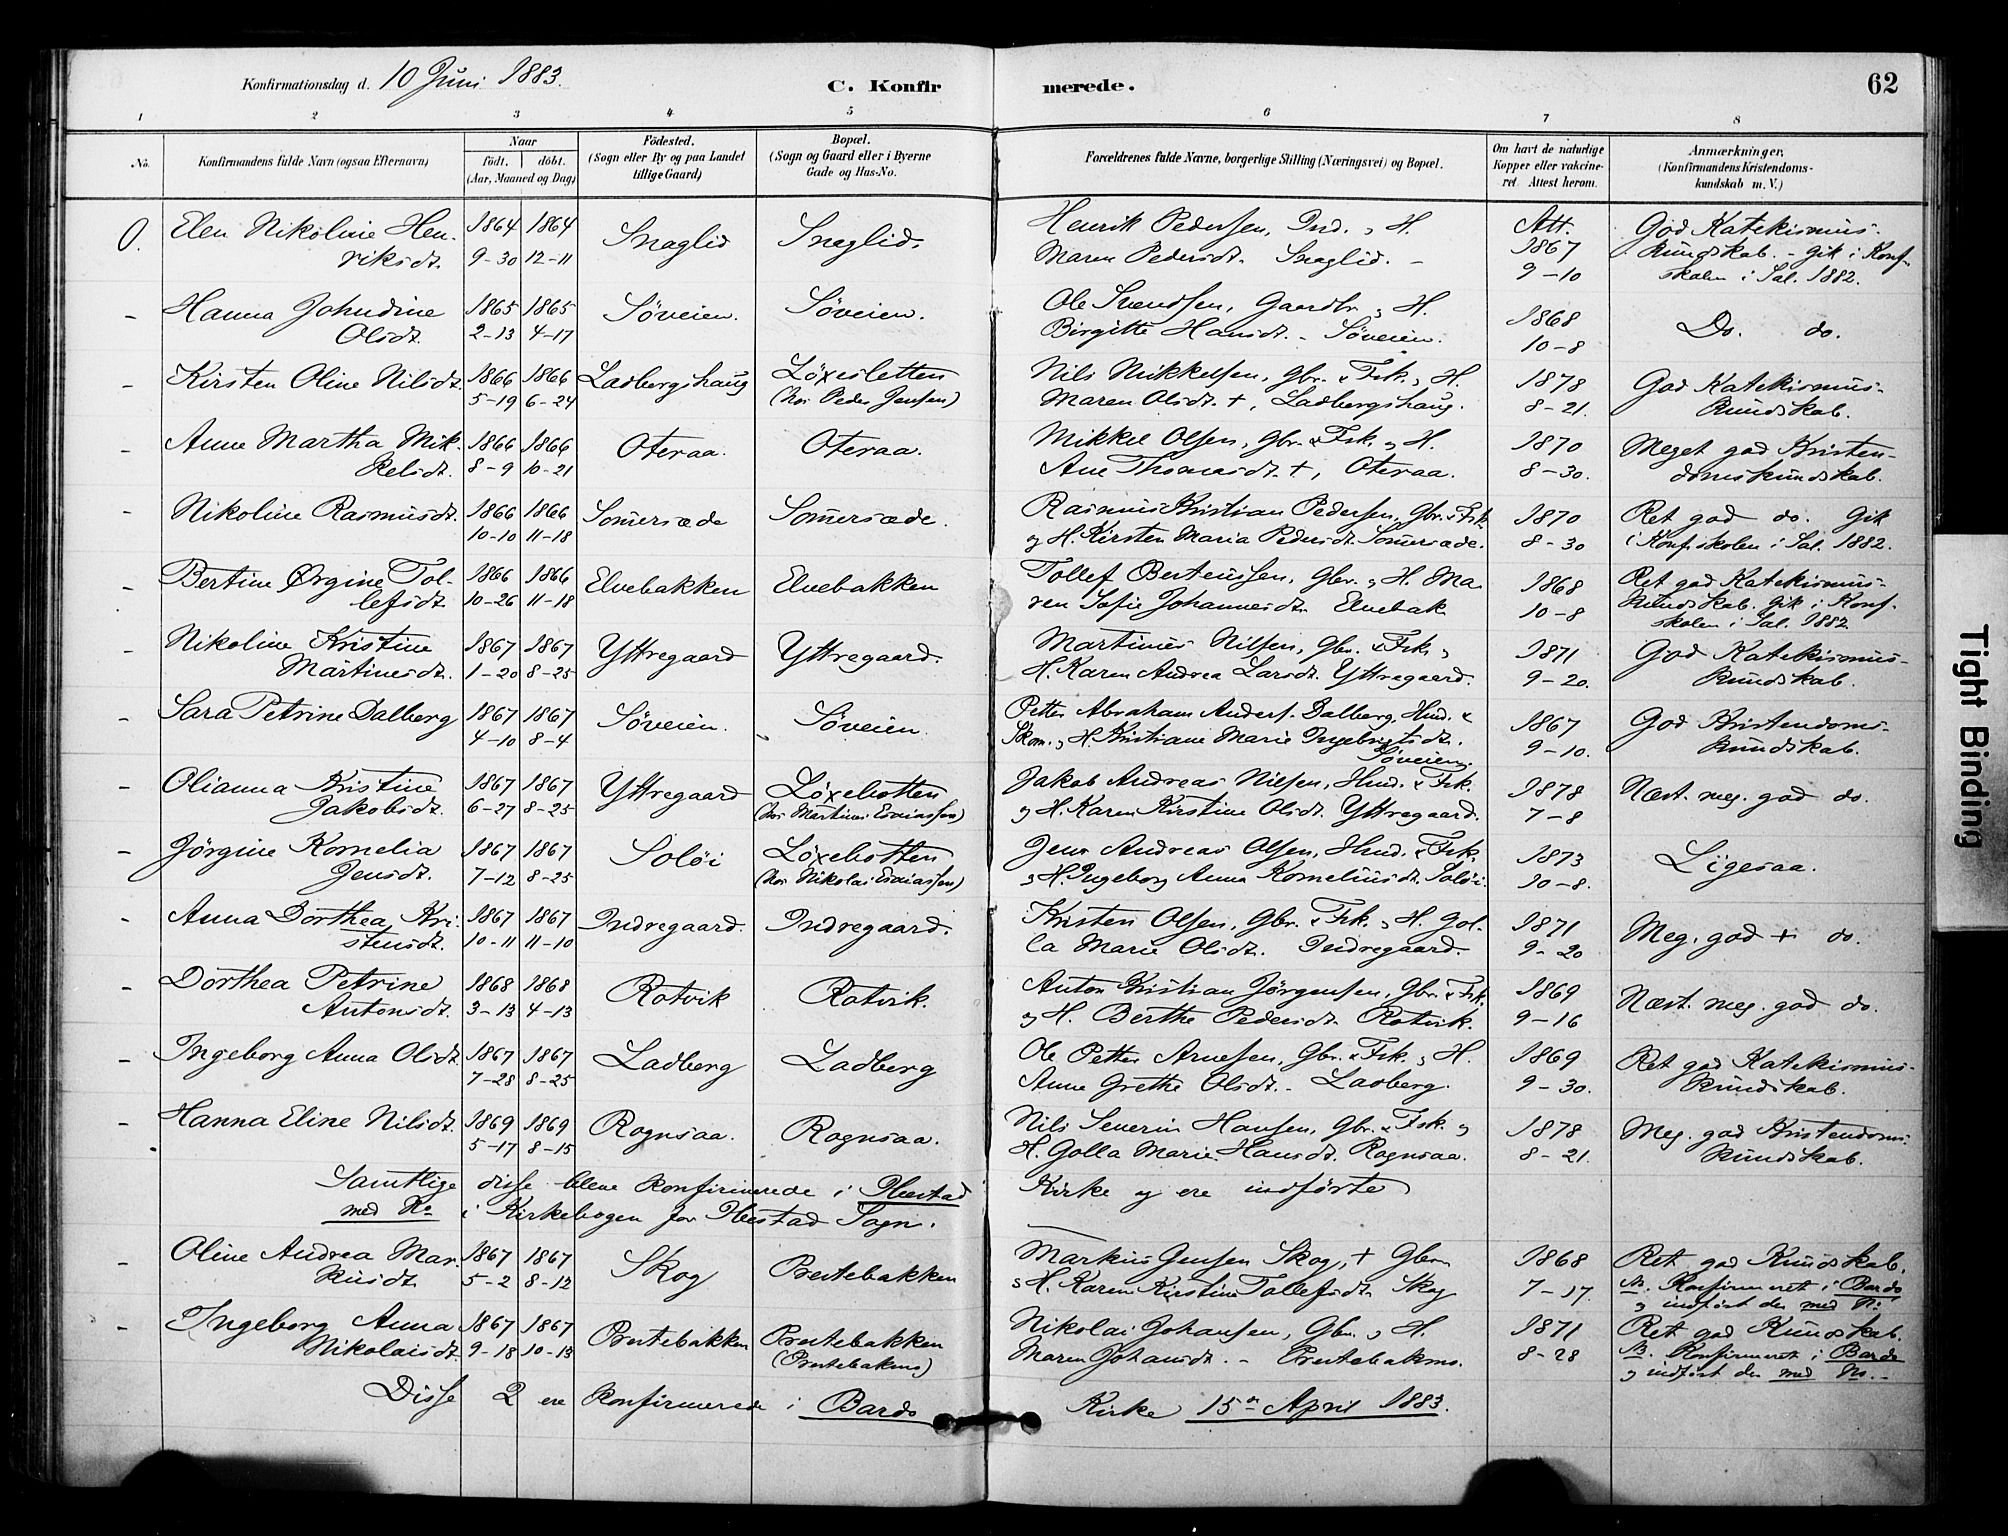 Konfirmationsdag d. 10 Juni 1883.
C. Konfirmerede.
62
1 2 3 4 5 6 7 8
No.
Konfirmandens fulde Navn (ogsaa Efternavn)
Naar
født. døbt.
(Aar, Maaned og Dag)
Födested.
(Sogn eller By og paa Landet
tillige Gaard)
Bopæl.
(Sogn og Gaard eller i Byerne
Gade og Hus-No.
Forældrenes fulde Navne, borgerlige Stilling (Næringsvei) og Bopæl.
Om havt de naturlige
Kopper eller vakcine-
ret. Attest herom.
Anmærkninger,
(Konfirmandens Kristendoms-
kundskab m. V.)
0. Elen Nikoline Hen- 1864 1864 Snaglid Snaglid. Henrik Pedersen, Ind. & H. Att. God Katekismus-
riksdt. 9-30 12-11 Maren Pedersdt. Snaglid. - 1867 Kundskab. - Gik i Konf-
9-10 skolen i Sal. 1882.
- Hanna Johndine 1865 1865 Söveien. Söveien. Ole Svendsen, Gaardbr. & H. 1868 Do. do.
Olsdt. 2-13 4-17 Birgitte Hansdt. - Söveien. 10-8
- Kirsten Oline Nilsdt. 1866 1866 Ladbergshaug Löxesletten Nils Mikkelsen, Gbr. & Fsk. & H. 1878 God Katekismus-
5-19 6-24 (hos Peder Jensen) Maren Olsdt. +, Ladbergshaug. 8-21. Kundskab.
- Anne Martha Mik- 1866 1866 Oteraa. Oteraa. Mikkel Olsen, Gbr. & Fsk. og H. 1870 Meget god Kristen-
kelsdt. 8-9 10-21 Ane Thomasdt. +, Oteraa. 8-30. domskundskab.
- Nikoline Rasmusdt. 1866 1866 Somersæde Somersæde. Rasmus Kristian Pedersen, Gbr. & Fsk. 1870 Ret god do. Gik
10-10 11-18 og H. Kirsten Maria Pedersdt. Somersæde. 8-30 i Konf.skolen i Sal. 1882.
- Bertine Ørgine Tol- 1866 1866 Elvebakken Elvebakken Tollef Berteussen, Gbr. & H. Ma- 1868 Ret god Katekismus-
lefsdt. 10-26 11-18 ren Sofie Johannesdt. Elvebak 10-8 Kundskab. Gik i Konf-
skolen i Sal. 1882
- Nikoline Kristine 1867 1867 Yttregaard Yttregaard. Martinus Nilsen, Gbr. & Fsk. & 1871 God Katekismus-
Martinusdt. 1-20 8-25 H. Karen Andrea Larsdt. Yttregaard. 9-20. Kundskab.
- Sara Petrine Dalberg 1867 1867 Söveien. Söveien. Petter Abraham Anders. Dalberg, Hmd. & 1867 God Kristendoms-
4-10 8-4 Skom. & H. Kristiane Marie Ingebrigtsdt. 9-10. Kundskab.
Söveien.
- Olianna Kristine 1867 1867 Yttregaard Löxebotten Jakob Andreas Nilsen, Hmd. & Fsk. 1878 Næst. meg. god do.
Jakobsdt. 6-27 8-25 (hos Martinus Esaiassen) og H. Karen Kirstine Olsdt. Yttregaard. 7-8
- Jörgine Kornelia 1867 1867 Soløi Löxebotten Jens Andreas Olsen, Hmd. & Fsk. 1873 Ligesaa.
Jensdt. 7-12 8-25 (hos Nikolai Esaiassen) & H. Ingeborg Anna Korneliusdt. Soløi. 10-8.
- Anna Dorthea Kri- 1867 1867 Indregaard. Indregaard. Kristen Olsen, Gbr. & Fsk. & H. Gol- 1871 Meg. god + do.
stensdt. 10-11 11-10 la Marie Olsdt. Indregaard. 9-20
- Dorthea Petrine 1868 1868 Rotvik Rotvik. Anton Kristian Jörgensen, Gbr. & Fsk. 1869 Næst. meg. god do.
Antonsdt. 3-13 4-13 og H. Berthe Pedersdt. Rotvik. 9-16
- Ingeborg Anna Olsdt. 1867 1867 Ladberg Ladberg Ole Petter Arnesen, Gbr. & Fsk. & H. 1869 Ret god Katekismus-
7-28 8-25 Anne Grethe Olsdt. - Ladberg. 9-30. Kundskab.
- Hanna Eline Nilsdt. 1869 1869 Rognsaa. Rognsaa. Nils Severin Hansen, Gbr. & Fsk. og 1878 Meg. god Kristendoms-
5-17 8-15 H. Golla Marie Hansdt. Rognsaa. 8-21. Kundskab.
Samtlige disse bleve Konfirmerede i Ibestad Kirke og ere indförte
med No i Kirkebogen for Ibestad Sogn.
- Oline Andrea Mar- 1867 1867 Skog Prestebakken Markus Jensen Skog, + Gbr. 1868 Ret god Kundskab.
kusdt. 5-2 8-12 & H. Karen Kirstine Tollefsdt. Skog 7-17. NB. Konfirmeret i Bardo
og indført der med No
- Ingeborg Anna 1867 1867 Prestebakken Prestebakken Nikolai Johansen, Gbr. & H. 1871 Ret god Kundskab.
Nikolaisdt. 9-18 10-13 (Prestebakmo) Maren Johansdt. - Prestebakmo. 8-28 NB. Konfirmeret i Bardo
og indført der med No. -
Disse 2 ere Konfirmerede i Bardo Kirke 15de April 1883.
Tight Binding